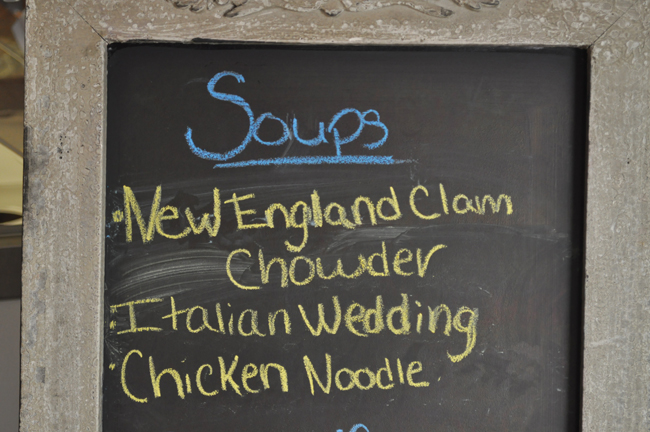 Soups
·New England Clam
Chowder
·Italian Wedding
·Chicken Noodle